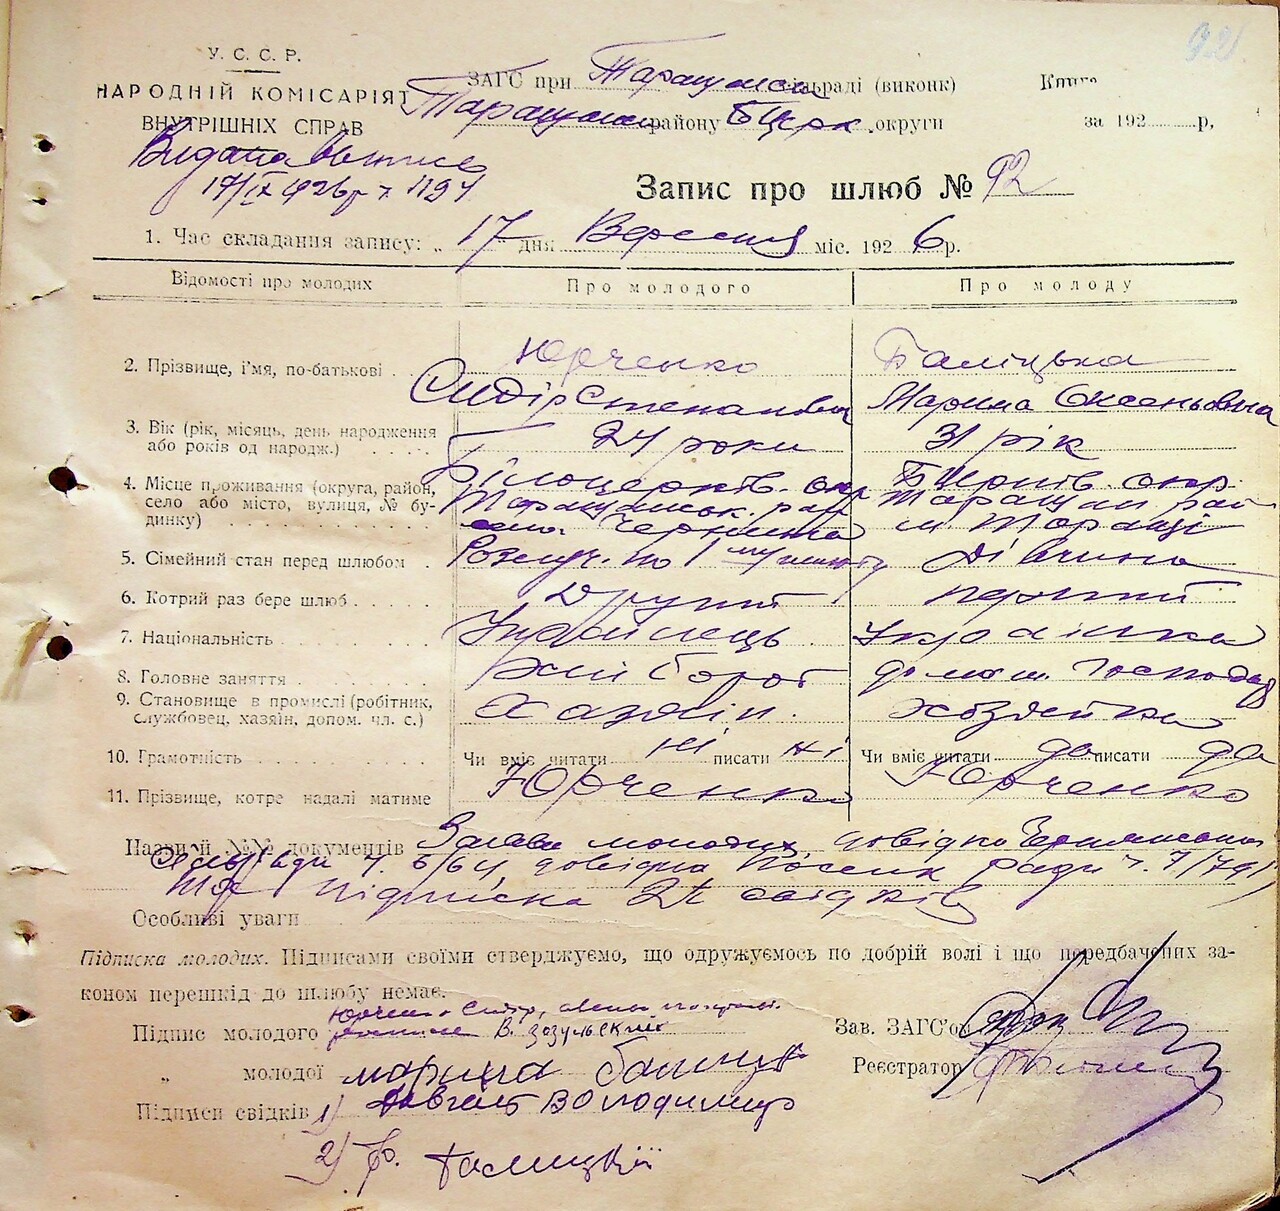 92
У. С. С. Р.
НАРОДНІЙ КОМІСАРІЯТ
ВНУТРІШНІХ СПРАВ
ЗАГС при Таращанськ сільраді (виконк)
Таращанськ району БЦерк. округи
за 192 р,
Видана выпись
17/IX 1926р
Запис про шлюб № 92
1. Час складання запису: „ 17 " дня Вересня міс. 1926 р.
Відомості про молодих Про молодого Про молоду
2. Прізвище, і'мя, по-батькові Юрченко Баліцька
Сидір Степанович Марина Оксентьовна
3. Вік (рік, місяць, день народження або років од народж.) 24 роки 31 рік
4. Місце проживання (округа, район, село або місто, вулиця, № будинку) Білоцерків. окр Таращанськ. рай село Чернин БЦерків. окр. Таращан рай м. Таращі
5. Сімейний стан перед шлюбом Розлуч. по 1 му шлюбу Дівчина
6. Котрий раз бере шлюб Другий перший
7. Національність Українець Українка
8. Головне заняття Хлібороб домаш. господар
9. Становище в промислі (робітник, службовец, хазяїн, допом. чл. с.) Хазяїн. хозяйка
10. Грамотність Чи вміє читати ні писати ні Чи вміє читати да писати да
11. Прізвище, котре надалі матиме Юрченко Юрченко
Назви й №№ документів Заява молодих довідка
сельради ч. довідка ради ч.
підписка 2х свідків
Особливі уваги
Підписка молодих. Підписами своїми стверджуємо, що одружуємось по добрій волі і що передбачених за-
коном перешкід до шлюбу немає.
Юрченко Сидір,
Підпис молодого В. Зозульский
Зав. ЗАГС'ом
„ молодої Марина Балицка
Реєстратор
Підписи свідків 1) Довгаль Володимир
2) Ф. Балицкий